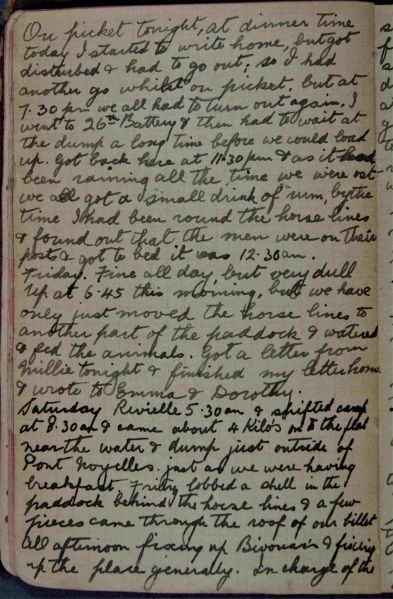 On picket tonight, at dinner time
today I started to write home, but got
disturbed & had to go out, so I had
another go whilst on picket. but at
7.30 pm we all had to turn out again. I
went to 26th Battery & then had to wait at
the dump a long time before we could load
up. Got back here at 11.30 pm & as it had
been raining all the time we were out
we all got a small drink of rum, by the
time I had been round the horse lines
& found out that the men were on their
posts & got to bed it was 12.30 am.
Friday. Fine all day, but very dull
Up at 6.45 this morning, but we have
only just moved the horse lines to
another part of the paddock & watered
& fed the animals. Got a letter from
Millie tonight & finished my letter home
& wrote to Emma & Dorothy.
Saturday Rivielle 5.30 am & shifted camp
at 8.30 am & came about 4 Kilos on to the flat
near the water & dump just outside of
Pont Noyelles. just as we were having
breakfast Fritz lobbed a shell in the
paddock behind the horse lines & a few
pieces came through the roof of our billet
All afternoon fixing up Bivouacs & fixing
up the place generally. In charge of the